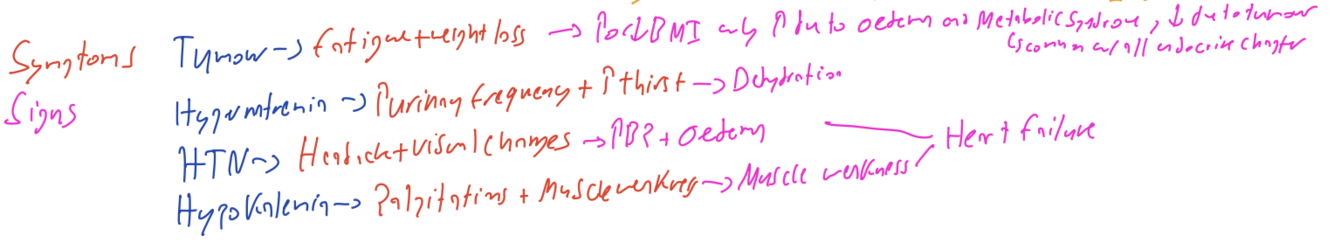 Symptoms Tumour -> Fatigue + weight loss -> ↑ or ↓ BMI only ↑ due to oedema and Metabolic Syndrome, ↓ due to tumour
↳ common w/ all endocrine chapter
Signs Hypernatremia -> ↑ urinary frequency + ↑ thirst -> Dehydration
HTN -> Headache + visual changes -> ↑BP + oedema
Heart failure
Hypokalemia -> Palpitations + Muscle weakness -> Muscle weakness